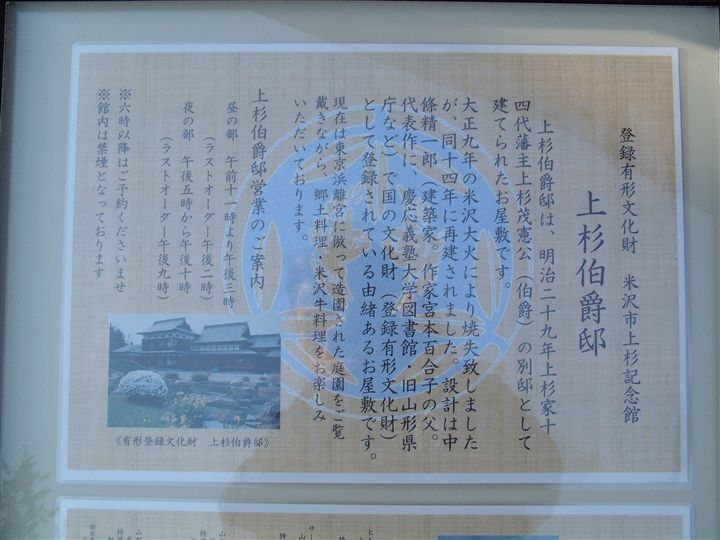 登録有形文化財　米沢市上杉記念館
上杉伯爵邸
上杉伯爵邸は、明治二十九年上杉家十
四代藩主上杉茂憲公（伯爵）の別邸として
建てられたお屋敷です。
大正九年の米沢大火により焼失致しました
が、同十四年に再建されました。設計は中
條精一郎（建築家。作家宮本百合子の父。
代表作に、慶応義塾大学図書館・旧山形県
庁など）で国の文化財（登録有形文化財）
として登録されている由緒あるお屋敷です。
現在は東京浜離宮に倣って造園された庭園をご覧
戴きながら、郷土料理・米沢牛料理をお楽しみ
いただいております。
上杉伯爵邸営業のご案内
昼の部　午前十一時より午後三時
（ラストオーダー午後二時）
夜の部　午後五時から午後十時
（ラストオーダー午後九時）
※六時以降はご予約くださいませ
※館内は禁煙となっております
《有形登録文化財　上杉伯爵邸》